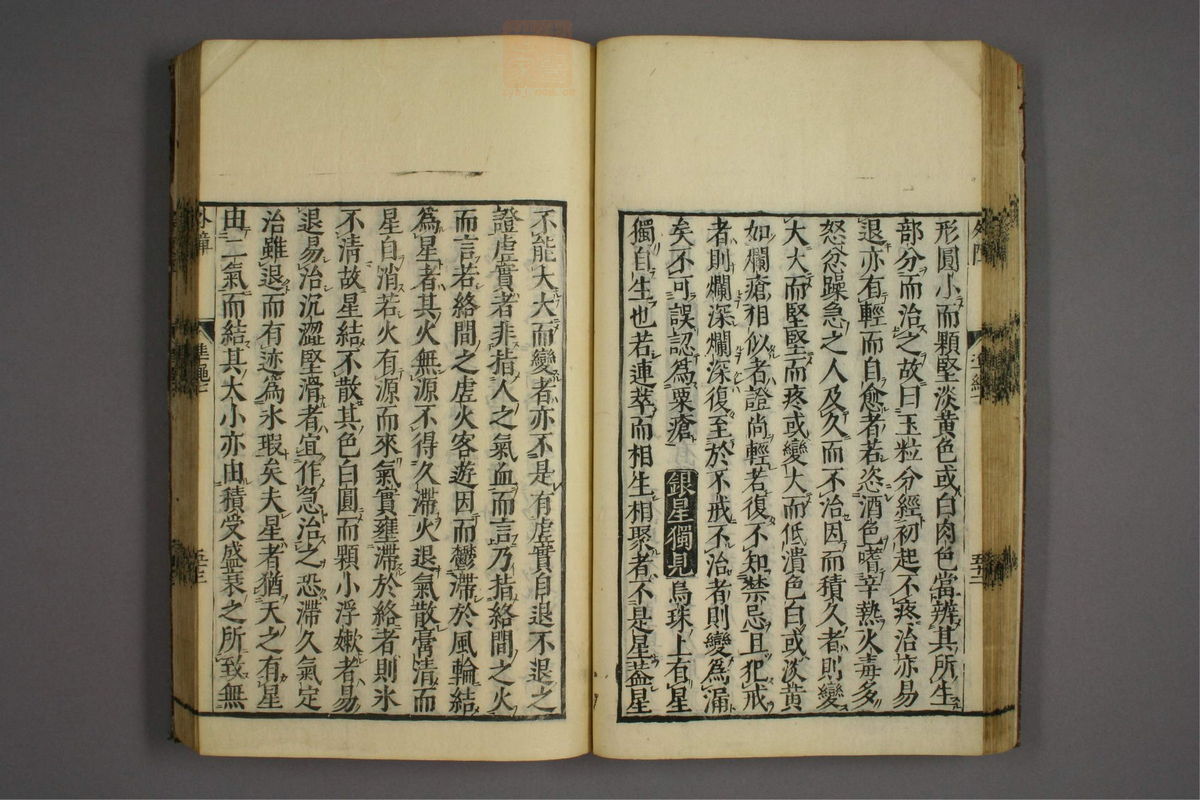 形圓小而顆堅淡黃色或白肉色當辨其所生
部分而治之故曰玉粒分經初起不疼治亦易
退亦有輕而自愈者若恣酒色嗜辛熱火毒多
怒忿躁急之人及久而不治因而積久者則變
大大而堅堅而疼或變大而低潰色白或淡黃
如爛瘡相似者證尚輕若復不知禁忌且犯戒
者則爛深爛深復至於不戒不治者則變為漏
矣不可誤認為粟瘡 銀星獨見 烏珠上有星
獨自生也若連萃而相生相聚者不是星蓋星
不能大大而變者亦不是有虛實自退不退之
證虛實者非指人之氣血而言乃指絡間之火
而言若絡間之虛火客遊因而鬱滯於風輪結
為星者其火無源不得久滯火退氣散膏清而
星自消若火有源而來氣實壅滯於絡者則氷
不清故星結不散其色白圓而顆小浮嫰者易
退易治沉澀堅滑者宜作急治之恐滯久氣定
治雖退而有迹為氷瑕矣夫星者猶天之有星
由二氣而結其大小亦由積受盛衰之所致無
外障 準繩七 五十三